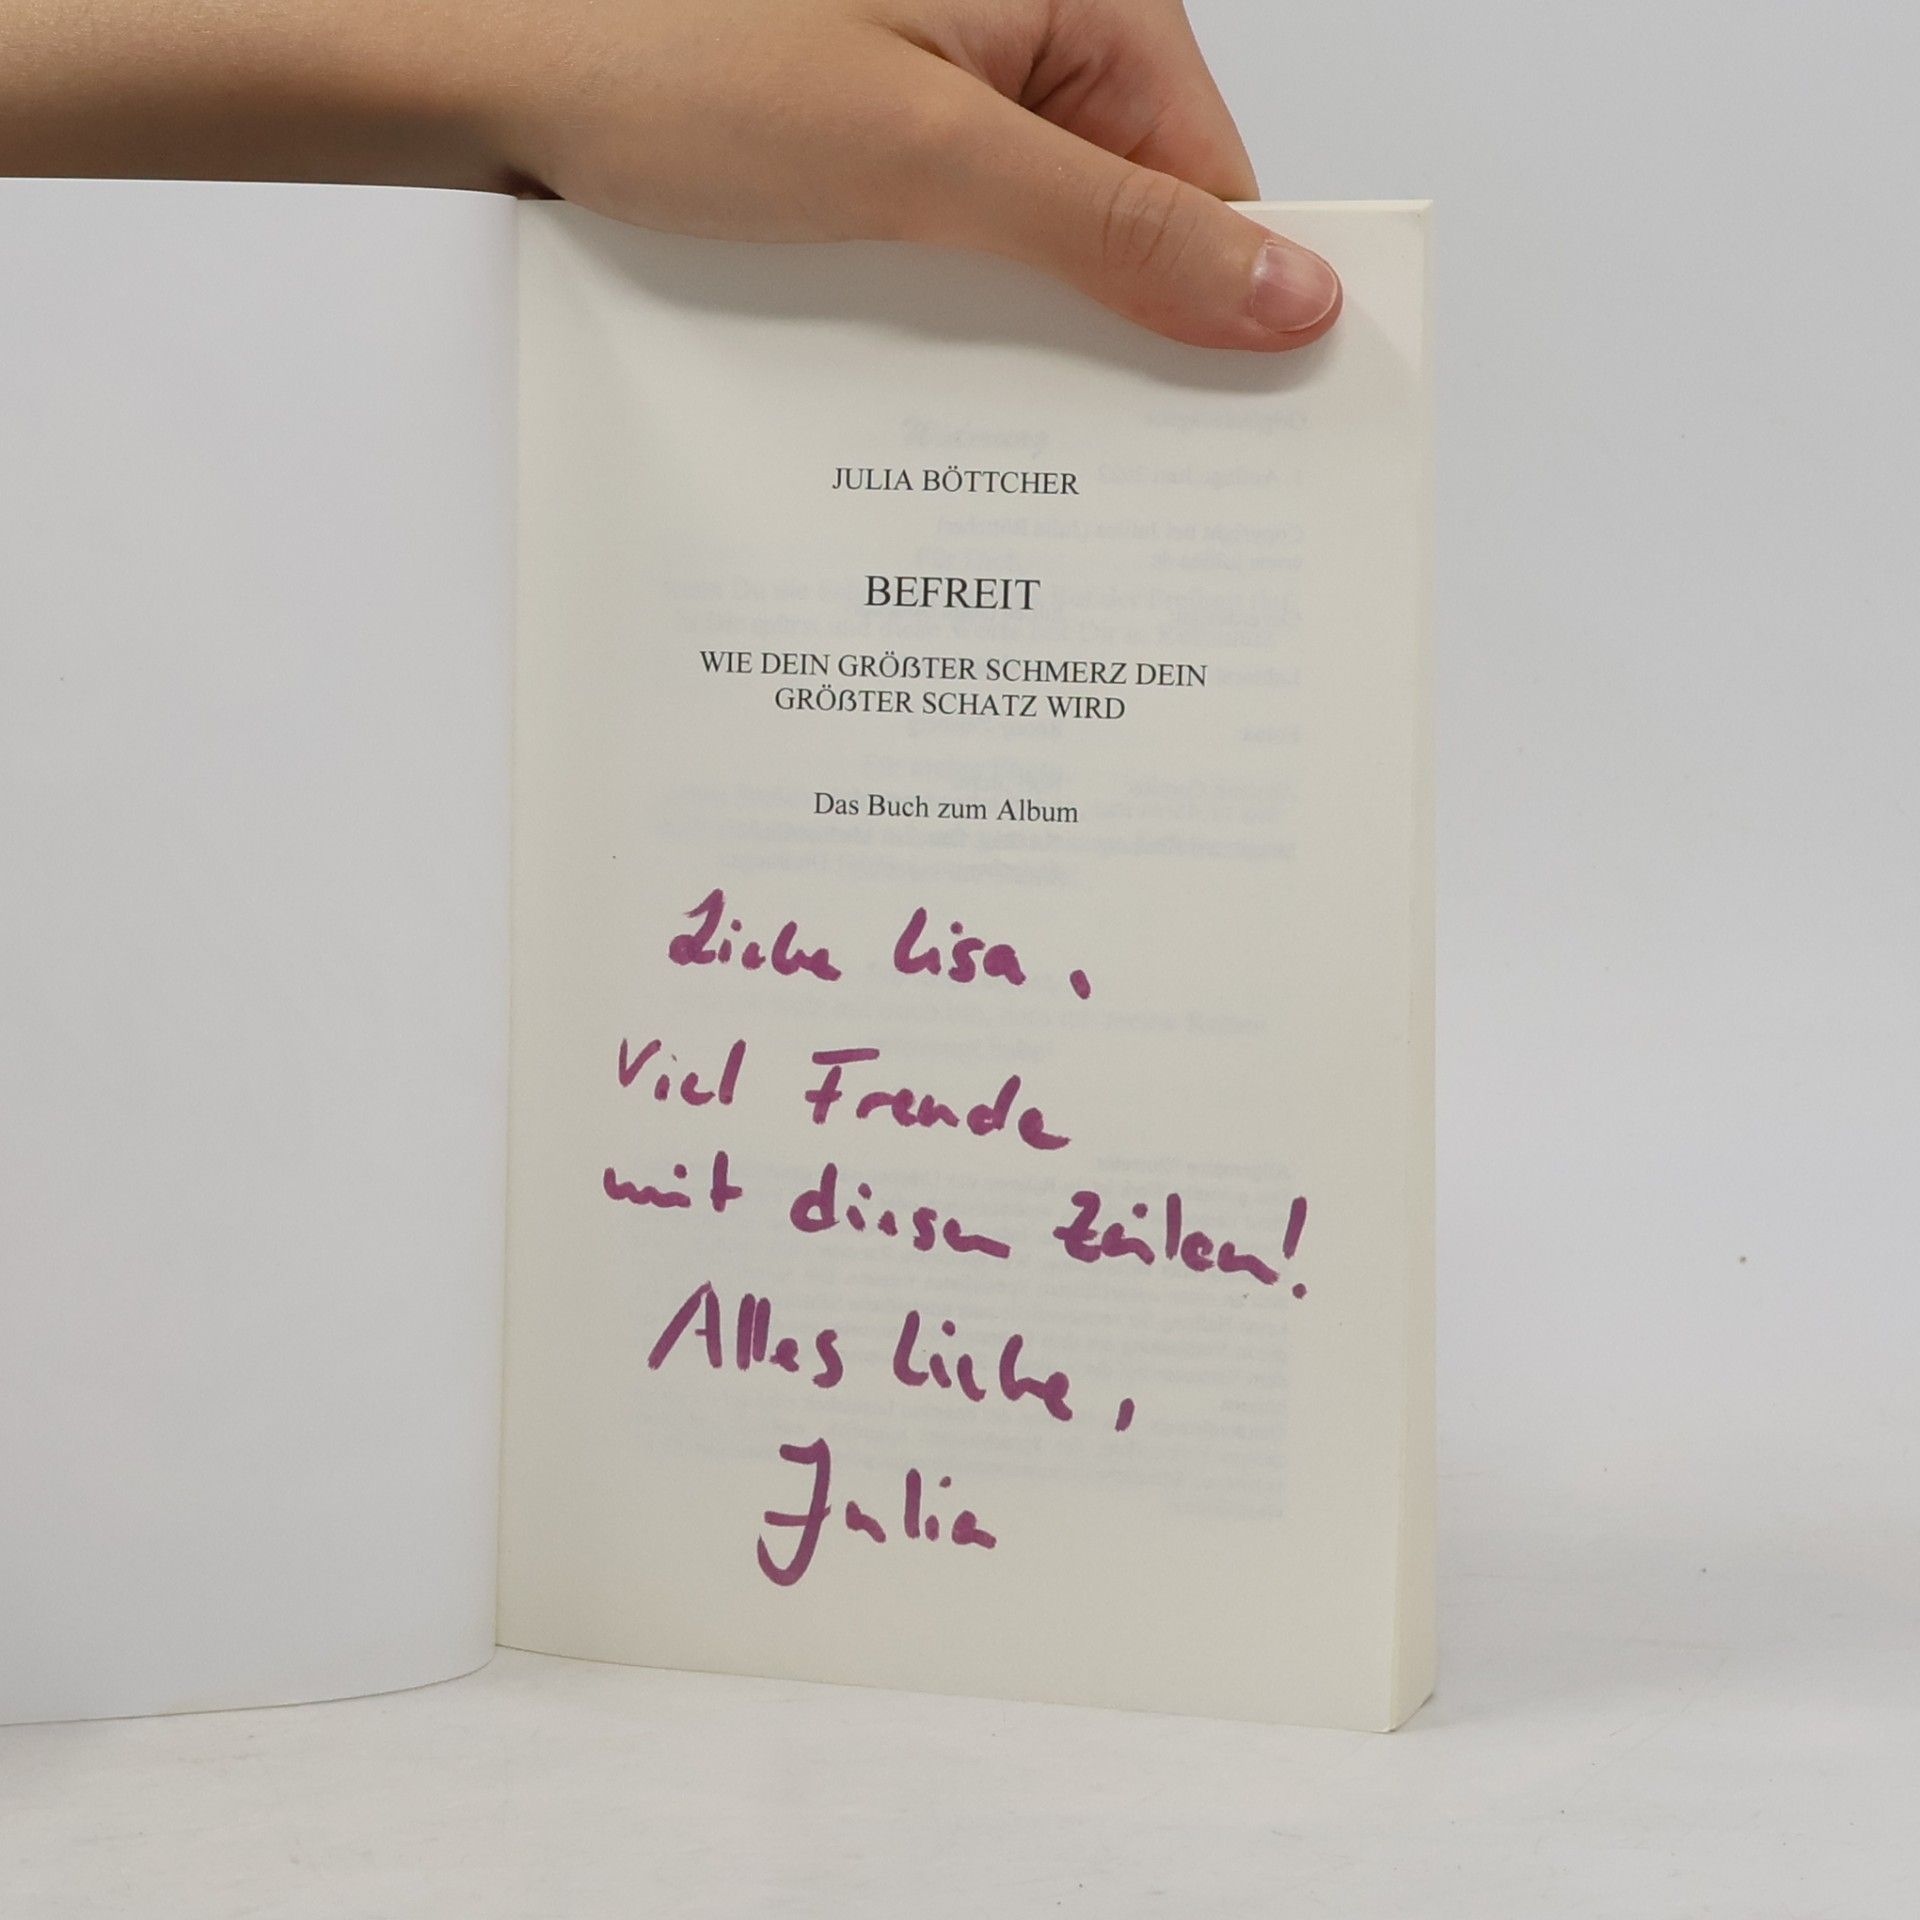 JULIA BÖTTCHER
BEFREIT
WIE DEIN GRÖßTER SCHMERZ DEIN
GRÖßTER SCHATZ WIRD
Das Buch zum Album
Liebe Lisa,
Viel Freude
mit diesen Zeilen!
Alles Liebe,
Julia